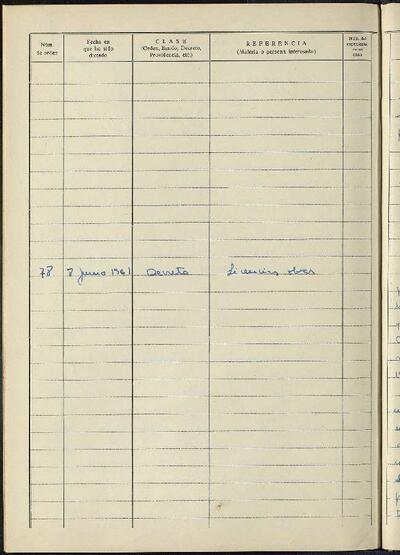 Núm. de orden
Fecha en que ha sido dictado
CLASE
(Orden, Bando, Decreto, Providencia, etc.)
REFERENCIA
(Materia o persona interesada)
Núm. de
78 8 Junio 1961 Decreto Licencias obras